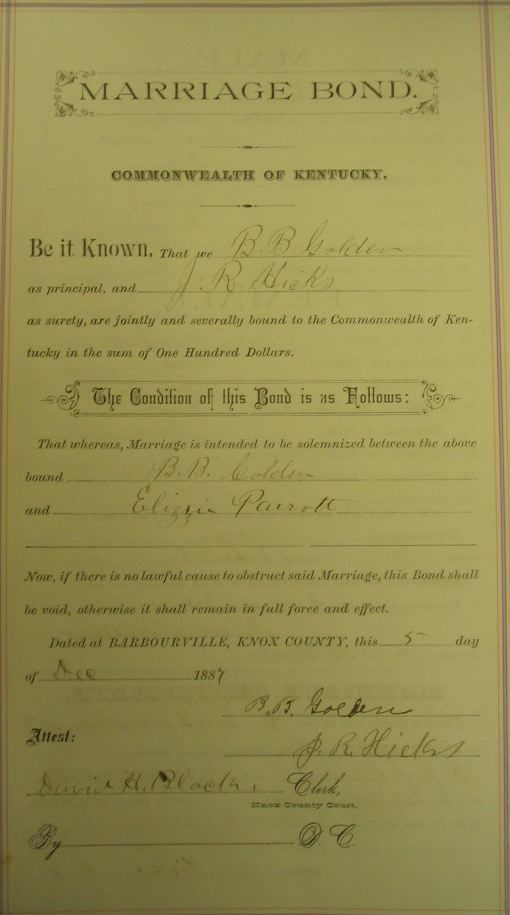 MARRIAGE BOND.
COMMONWEALTH OF KENTUCKY.
Be it Known, That we B. B. Golden
as principal, and J. R. Hicks
as surety, are jointly and severally bound to the Commonwealth of Ken-
tucky in the sum of One Hundred Dollars.
The Condition of this Bond is as Follows:
That whereas, Marriage is intended to be solemnized between the above
bound B. B. Golden
and Elizzie Parrott
Now, if there is no lawful cause to obstruct said Marriage, this Bond shall
be void, otherwise it shall remain in full force and effect.
Dated at BARBOURVILLE, KNOX COUNTY, this 5 day
of Dec 1887
B. B. Golden
Attest:
J. R. Hicks
David H. Black, Clerk,
Knox County Court.
By D. C.